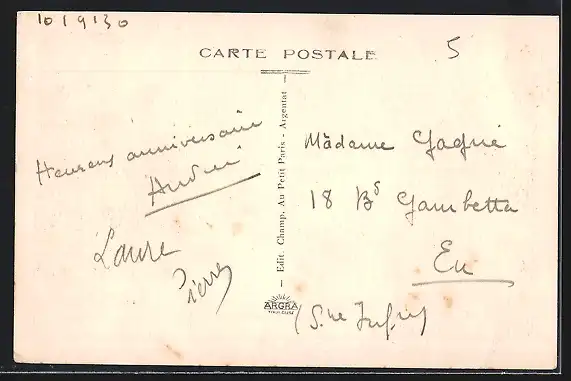 10/9/30
CARTE POSTALE
5
Heureux anniversaire
André
Laure
Pierre
Edit. Champ, Au Petit Paris - Argentat
ARGRA
TOULOUSE
Madame Gagné
18 Bd Gambetta
Eu
(S.ne Infre)